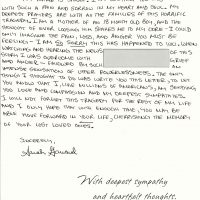 WITH SUCH A PAIN AND SORROW IN MY HEART AND SOUL. MY
DEEPEST PRAYERS ARE WITH ALL THE FAMILIES OF THIS HORRIFIC
TRAGEDY. I AM A MOTHER OF AN 18 MONTH OLD BOY, AND THE
THOUGHT OF EVER LOSING HIM SCARES ME TO MY CORE - I COULD
ONLY IMAGINE THE PAIN, LOSS, AND ANGER YOU MUST BE
FEELING - I AM SO SORRY THIS HAS HAPPENED TO YOU. WHEN
WATCHING AND HEARING THE NEWS OF THIS
I WAS OVERCOME WITH GRIEF
AND ANGER FOLLOWED BY SUCH AN
SENSATION OF UTTER POWERLESSNESS. THE ONLY
THING I THOUGHT TO DO WAS WRITE YOU THIS LETTER, TO LET
YOU KNOW THAT I, LIKE MILLIONS OF AMERICANS, AM SENDING
YOU LOVE AND COMPASSION AND MY DEEPEST SYMPATHIES.
I WILL NOT FORGET THIS TRAGEDY FOR THE REST OF MY LIFE
AND I ONLY HOPE THAT, GIVEN ENOUGH TIME, YOU MAY BE
ABLE MOVE FORWARD IN YOUR LIFE, CHERISHING THE MEMORY
OF YOUR LOST LOVED ONES.
SINCERELY,
With deepest sympathy
and heartfelt thoughts.